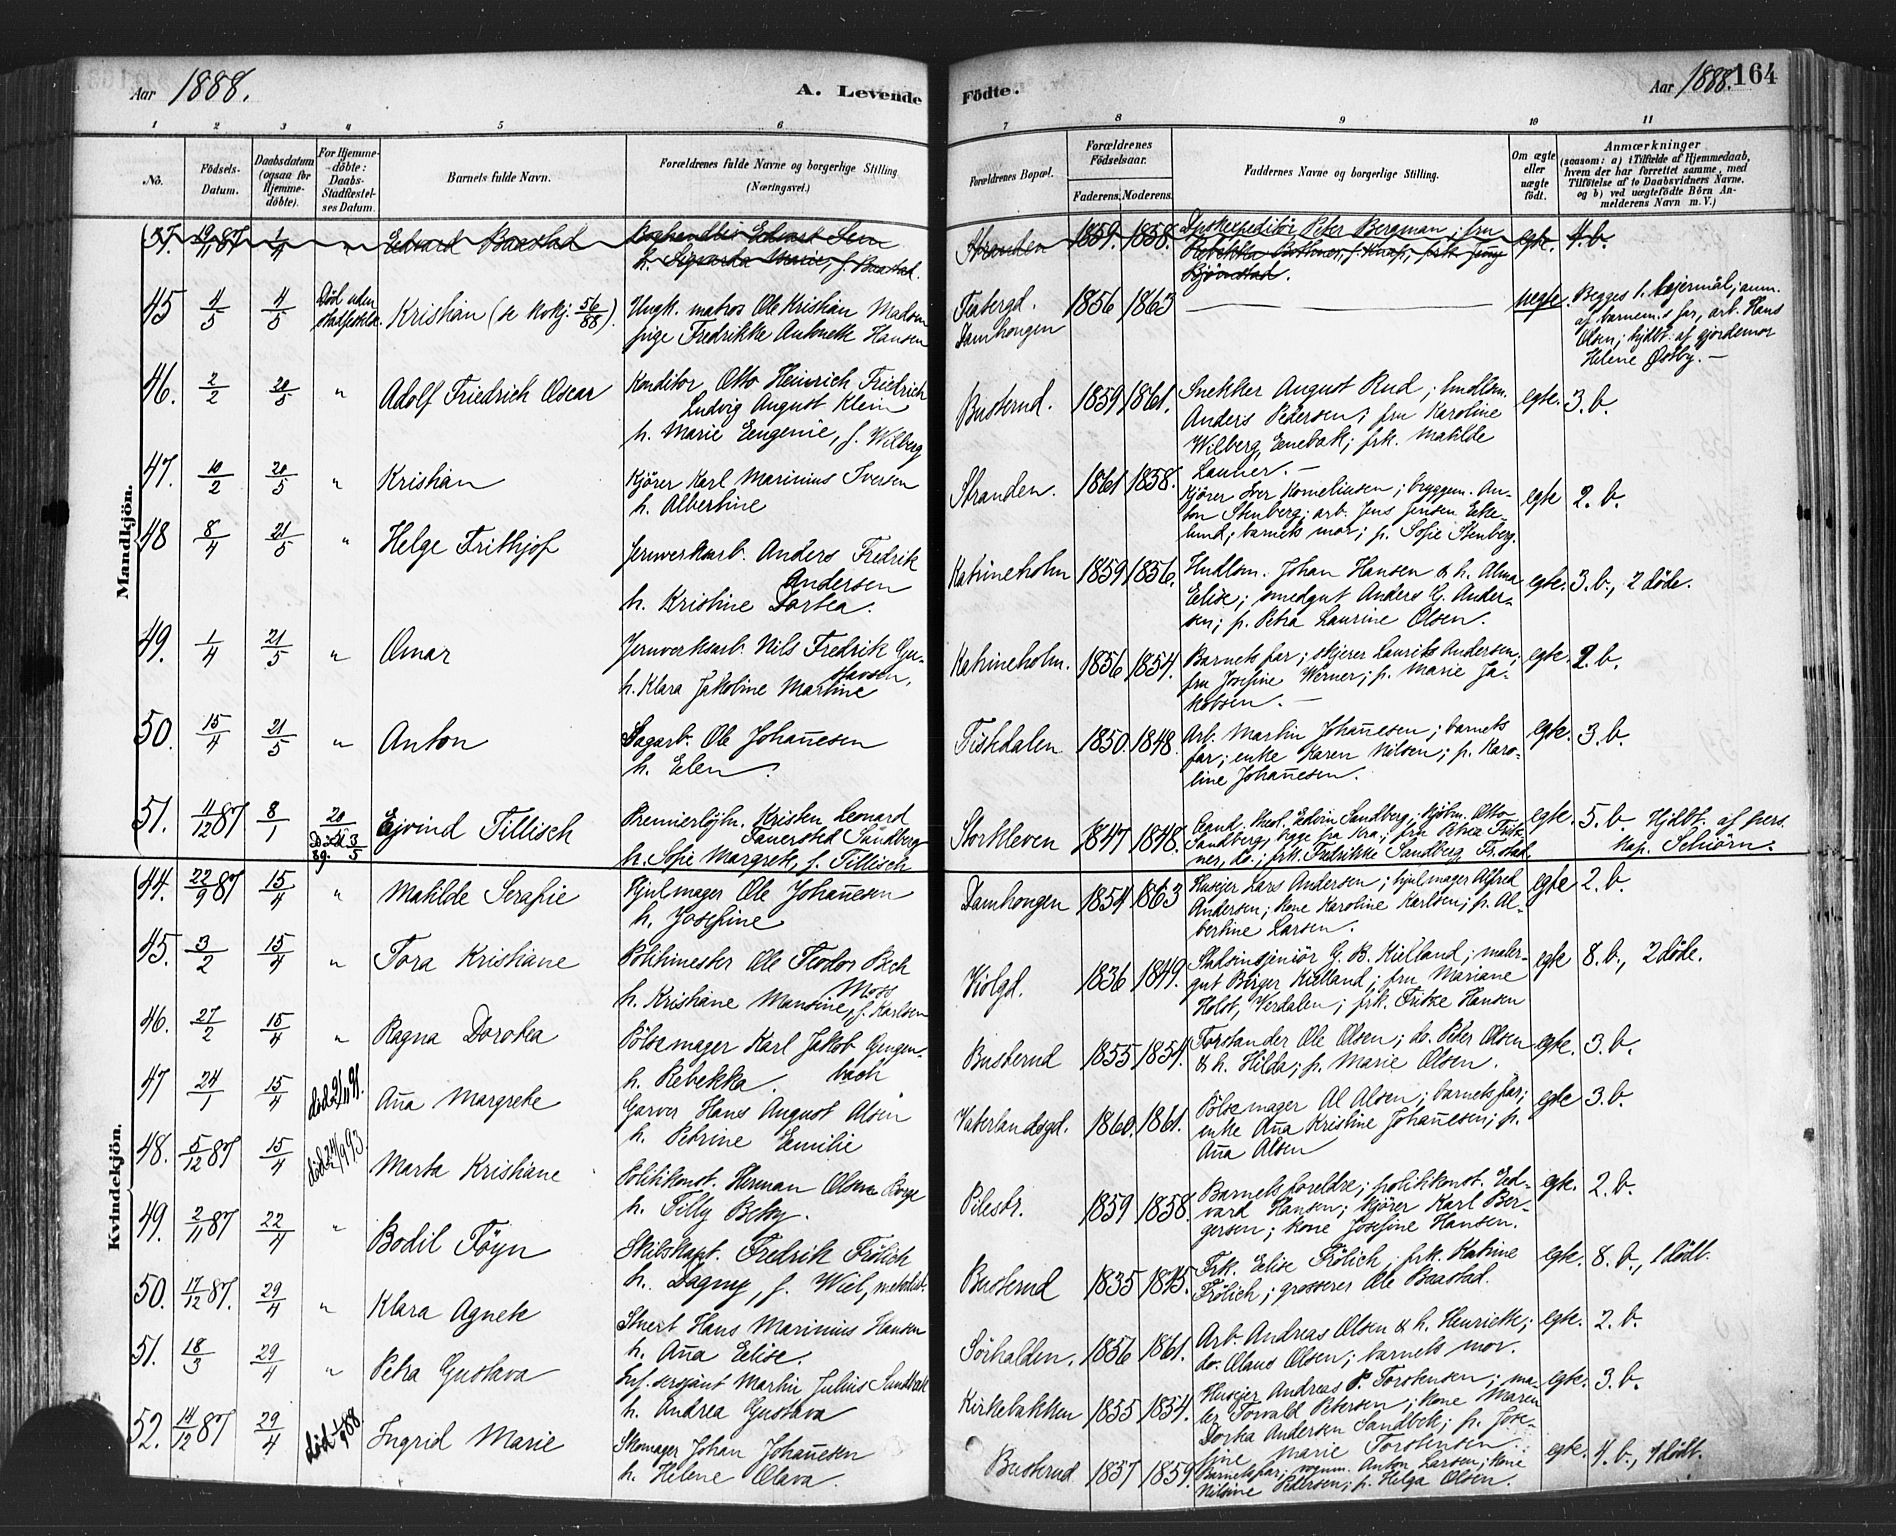 Aar 1888.
A. Levende
Födte.
Aar 1888.
164
1 2 3 4 5 6 7 8 9 10 11
No.
Födsels-Datum.
Daabsdatum (ogsaa for Hjemme-döbte).
For Hjemme-döbte: Daabs-Stadfæstelses Datum.
Barnets fulde Navn.
Forældrenes fulde Navne og borgerlige Stilling (Næringsvei.)
Forældrenes Bopæl.
Forældrenes Födselsaar.
Faderens. Moderens.
Faddernes Navne og borgerlige Stilling.
Om ægte eller uægte födt.
Anmærkninger
(saasom: a) i Tilfælde af Hjemmedaab, hvem der har forrettet samme, med Tilföielse af to Daabsvidners Navne, og b) ved uægtefödte Börn Anmelderens Navn m. V.)
Mandkjön.
Edvard Baastad
h. Sigvarda Marie, f. Baastad.
Stranden 1859. 1858.
Peter Bergman; fru
Bjönstad.
egte. 4. b.
45 4/5 4/5 Död uden stadfestelse Kristian (se kvkj. 56/88).
Ungk. matros Ole Kristian Madsen
pige Fredrikke Antonette Hansen
Damhaugen
1856 1863
uegte. Begges 1. leiermål; anm.
af barnem.s far, arb. Hans
Olsen; hjdbt. af gjordemor
Helene Østby. —
46. 2/2 20/5 " Adolf Friedrich Oscar
Konditor Otto Heinrich Friedrich
Ludvig August Klein
h. Marie Eugenie, f. Wilberg
Busterud. 1859 1861.
Snekker August Rud; hndlsm.
Anders Pedersen; fru Karoline
Wilberg, Enebak; frk. Matilde
Launer. —
egte. 3. b.
47. 10/2 20/5 " Kristian
Kjörer Karl Marinius Iversen
h. Albertine
Stranden. 1861 1858.
Kjörer Iver Korneliusen; bryggem. An-
ton Stenberg; arb. Jens Jensen Eke-
lund; barnets mor; p. Sofie Stenberg.
egte 2. b.
48 8/4 21/5 " Helge Frithjof
Jernverksarb. Anders Fredrik
Andersen
h. Kristine Dortea.
Katrineholm 1859 1856.
Hndlsm. Johan Hansen & h. Alma
Elise; smedgut Anders G. Ander-
sen; p. Petra Laurine Olsen.
egte. 3. b., 2 döde.
49. 1/4 21/5 " Omar
Jernverksarb. Nils Fredrik Gu-
stavsen,
h. Klara Jakobine Martine
Katrineholm. 1856 1854.
Barnets far; skjerer Laurits Andersen;
fru Josefine Werner; p. Marie Ja-
kobsen. —
egte. 2. b.
50. 15/4 21/5 " Anton
Sagarb. Ole Johannesen
h. Elen.
Tistedalen 1850. 1848.
Arb. Martin Johannesen; barnets
far; enke Karen Nilsen; p. Karo-
line Johannesen.
egte. 3. b.
51. 11/12 87 8/1 20/5 Ejvind Tillisch
Premierlöjtn. Kristen Leonard
Fauersted Sandberg
h. Sofie Margrete, f. Tillisch
Storkleven 1847 1848.
Cand. theol. Edvin Sandberg; kjøbm. Otto
Sandberg, begge fra Kra.; fru Petrea Fritz-
ner, do.; frk. Fredrikke Sandberg Fr.stad.
egte. 5. b. Hjdbt. af pers.
kap. Schiörn.
Kvindekjön.
44. 22/9 87 15/4 " Matilde Serafie
Hjulmager Ole Johannesen
h. Josefine
Damhaugen 1854 1863
Husejer Lars Andersen; hjulmager Alfred
Andersen; kone Karoline Karlsen; p. Al-
bertine Larsen.
egte 2. b.
45. 3/2 15/4 " Tora Kristiane
Politimester Ole Teodor Bech
Moss
h. Kristiane Mantine, f. Karlsen
Violgd. 1836 1849.
Statsingeniör G. B. Kielland; maler-
gut Birger Kielland; fru Mariane
Holst, Verdalen; frk. Fritze Hansen
egte 8. b., 2 döde.
46. 27/2 15/4 " Ragna Dorotea
Pölsemager Karl Jakob Gengen-
bach
h. Rebekka.
Busterud 1855 1854.
Forstander Ole Olsen; do. Peter Olsen
& h. Hilda; p. Marie Olsen.
egte. 3. b.
47 24/1 15/4 Anna Margrete
Garver Hans August Alsen
h. Petrine Emilie
Vaterlandsgd. 1860. 1861.
Pölsemager Al Alsen; barnets far;
enke Anna Kristine Johannesen; p.
Anna Alsen
egte 3. b.
48. 5/12 87 15/4 död 24/9 93. Marta Kristiane
Politikonst. Herman Olsen Borge
h. Tilly Betsy.
Pilestr. 1859 1858.
Barnets foreldre; politikonst. Ed-
vard Hansen; kjörer Karl Ber-
gersen; kone Josefine Hansen.
egte. 2. b.
49. 2/11 87 22/4 " Bodil Föyn
Skibskapt. Fredrik Frölich
h. Dagny, f. Wiel, metodist.
Busterud 1835 1845.
Frk. Elise Frölich; frk. Katrine
Frölich; grosserer Ole Baastad.
egte. 8. b., 1 dödf.
50. 17/12 87. 29/4 " Klara Agnete
Stuert Hans Marinius Hansen
h. Anna Elise.
Sörhalden. 1856 1861.
Arb. Andreas Olsen & h. Henriette;
do. Olaus Olsen; barnets mor.
egte. 2. b.
51. 18/3 29/4 " Petra Gustava
Inf. sersjant Martin Julius Sandbek
h. Andrea Gustava
Kirkebakken 1855 1854.
Husejer Andreas P. Torstensen; ma-
ler Torvald Petersen; kone Maren
Dortea Andersen Sandbek; p. Jose-
fine Marie Torstensen.
egte. 3. b.
52. 14/12 87 29/4 Ingrid Marie
Skomager Johan Johannesen
h. Helene Olava.
Busterud 1857 1859.
Barnets far; vognm. Anton Larsen; kone
Nilsine Pedersen; p. Helga Olsen.
egte. 4. b., 1 dödf.